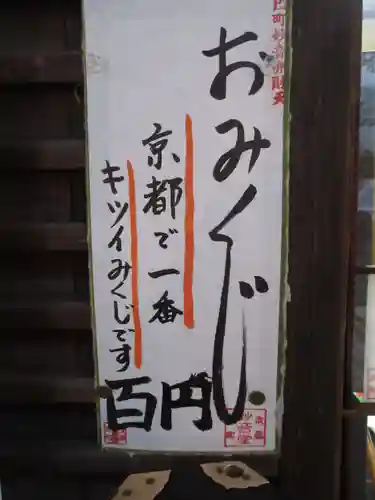 おみくじ
京都で一番
キツイみくじです
百円